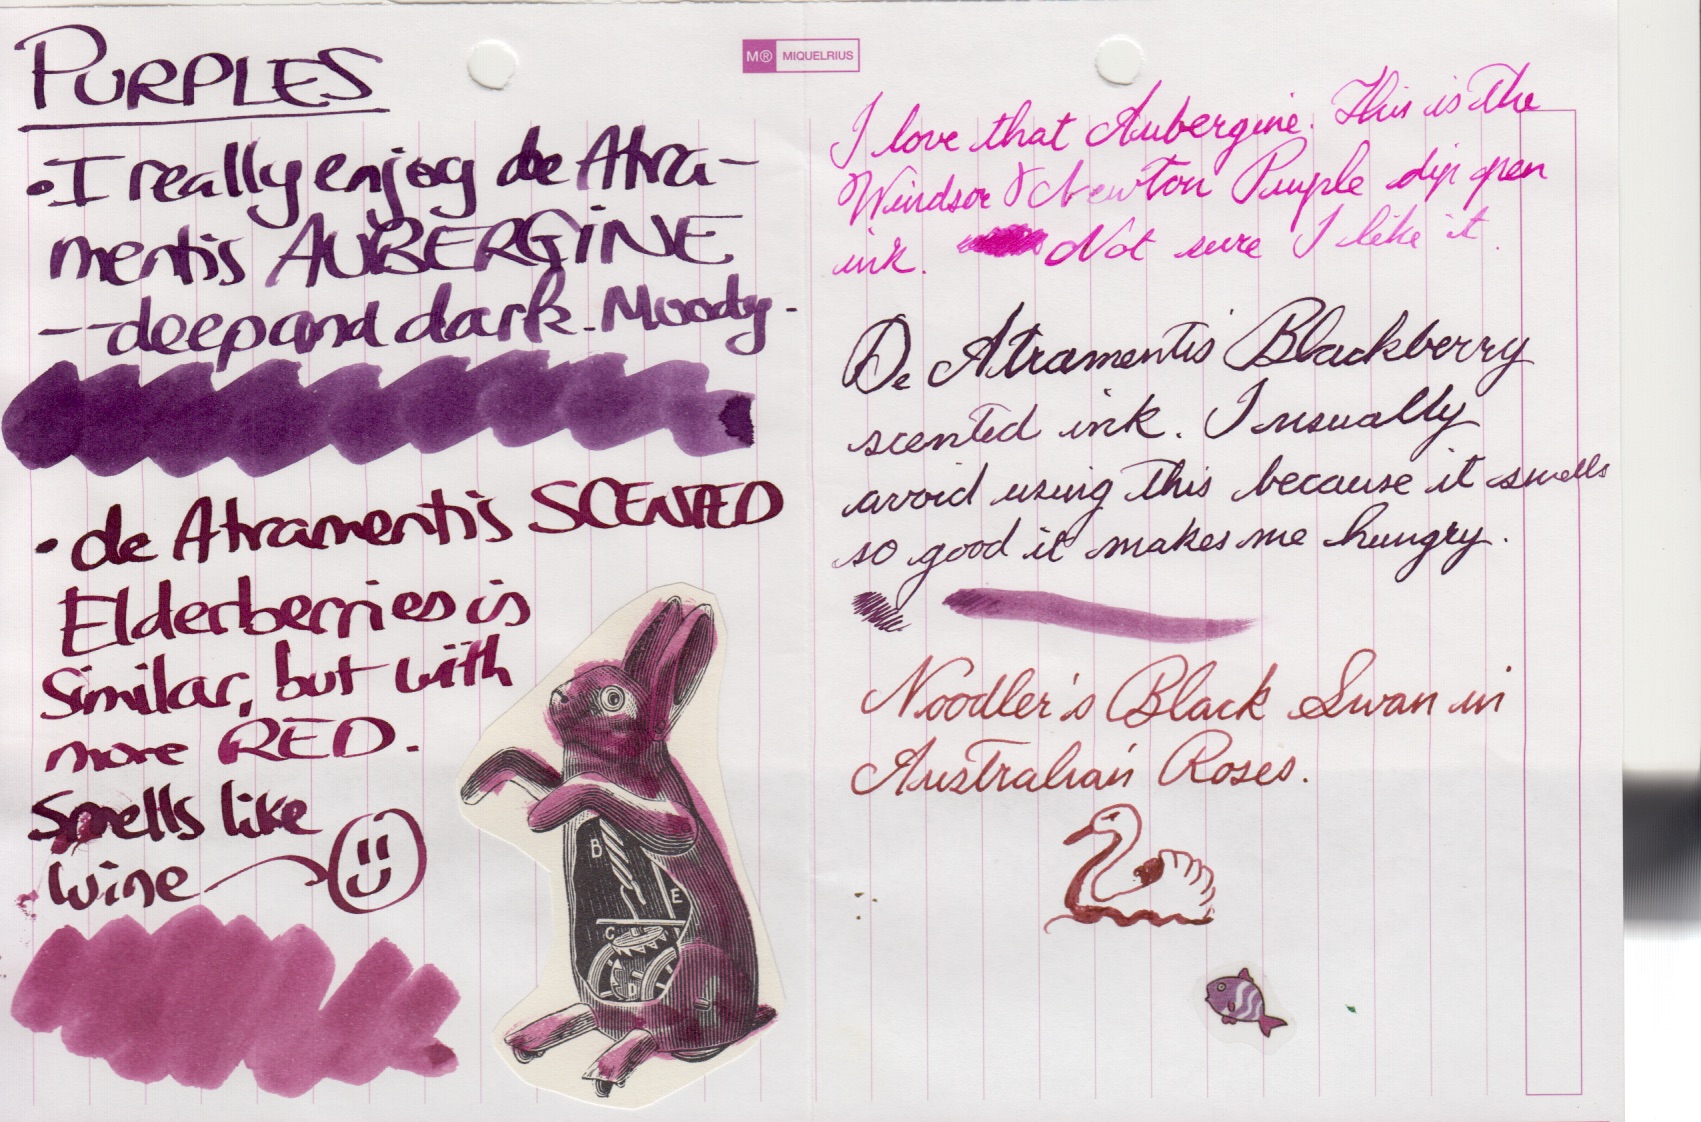 PURPLES
• I really enjoy de Atra-
mentis AUBERGINE
-- deep and dark. Moody.
• de Atramentis SCENTED
Elderberries is
similar, but with
more RED.
Smells like
wine
B
E
C
D
M® MIQUELRIUS
I love that Aubergine. This is the
Windsor & Newton Purple dip pen
ink. Not sure I like it.
De Atramentis Blackberry
scented ink. I usually
avoid using this because it smells
so good it makes me hungry.
Noodler's Black Swan in
Australian Roses.